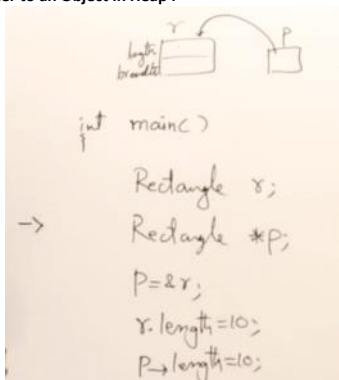 er to an Object in Heap :
r
p
length
breadth
int main()
{
Rectangle r;
→ Rectangle *p;
P=&r;
r.length=10;
P→length=10;